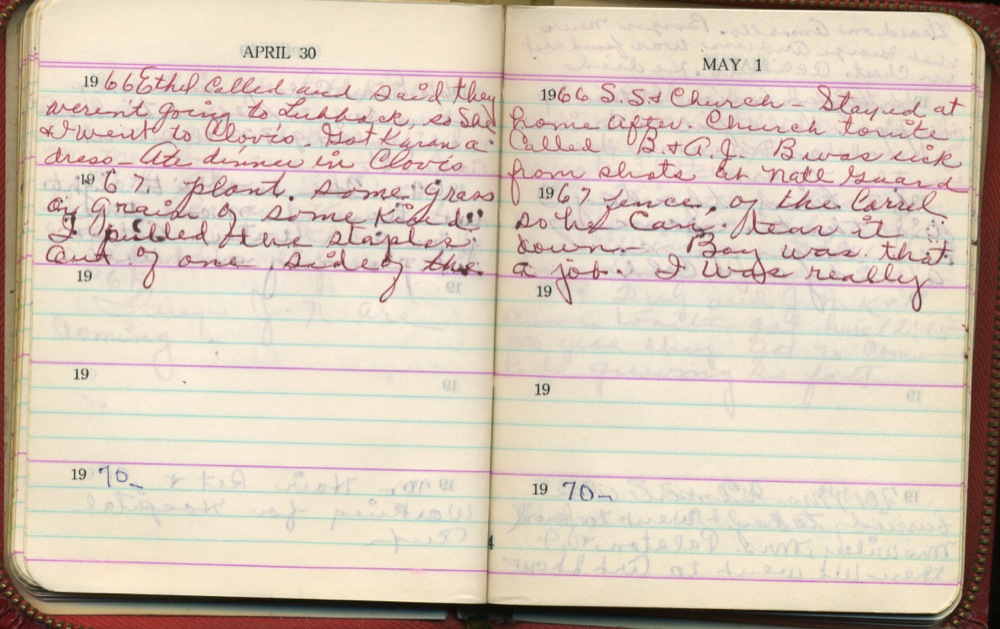 APRIL 30
1966 Ethel Called and said they
weren't going to Lubbock, so she
& I went to Clovis. Got Karan a
dress - Ate dinner in Clovis
1967. plant. some grass
or grain of some kind.
I pulled the staples.
out of one side of the
19
19
1970-
MAY 1
1966 S.S & Church - Stayed at
home after. Church tonite
Called B & A.J. B was sick
from shots at Natl Guard
1967 fence, of the Corril
so he Can. tear it
down. Boy was that
a job. I was really
19
19
1970-